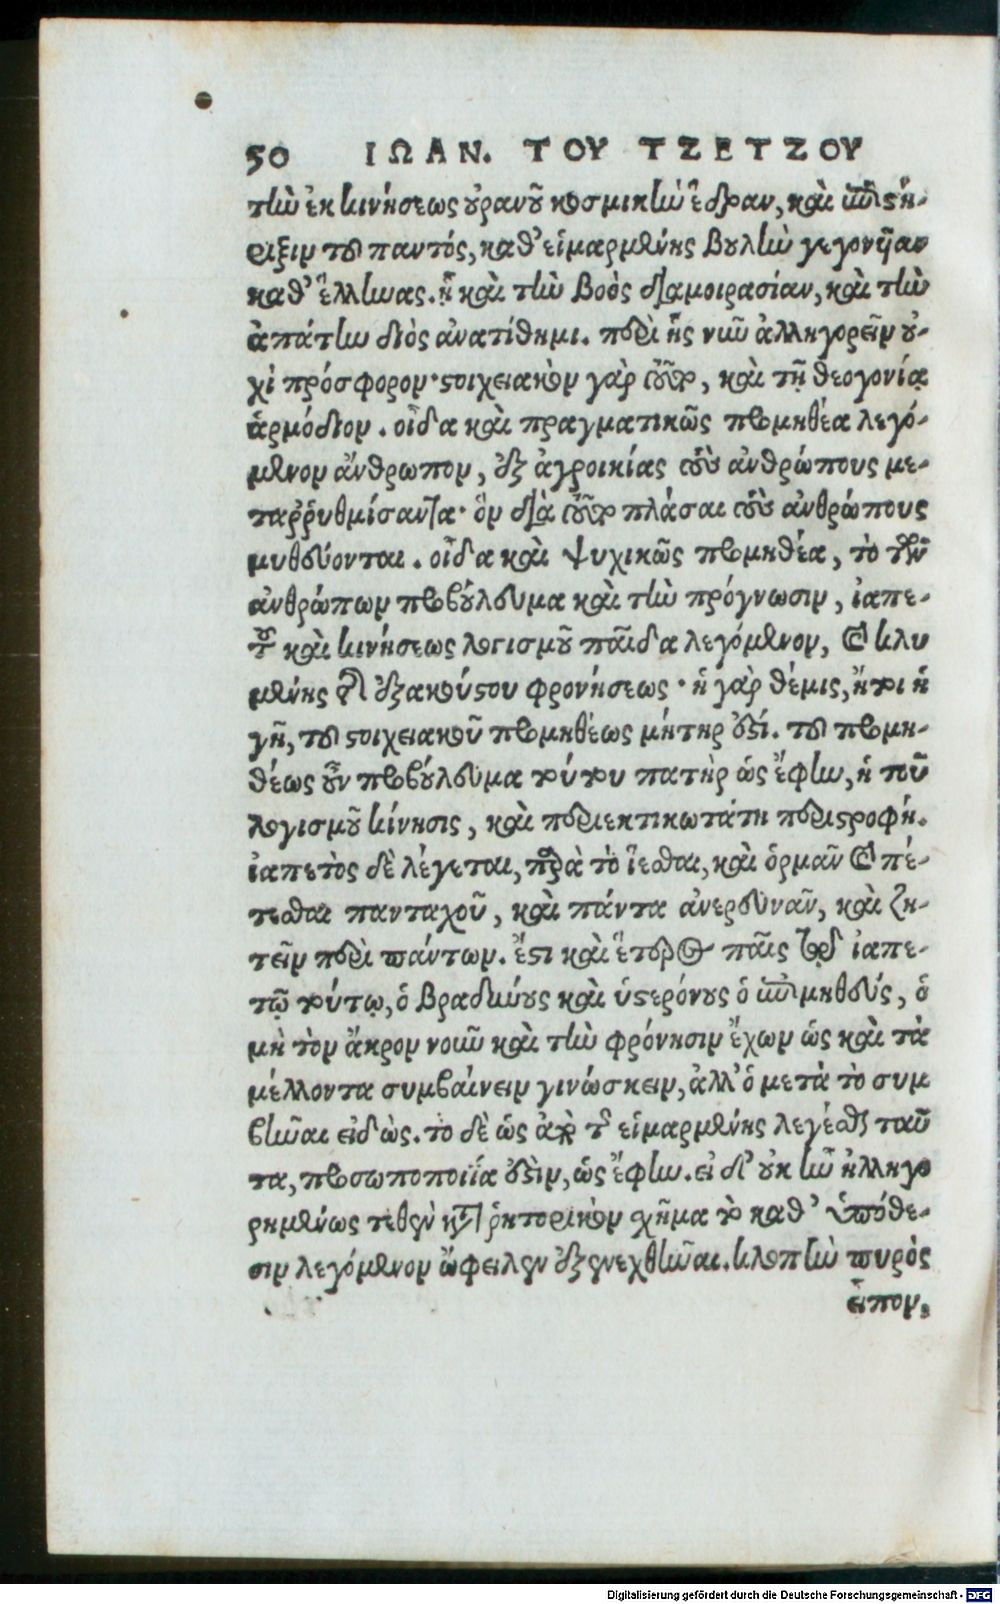 50 ΙΩΑΝ. ΤΟΥ ΤΖΕΤΖΟΥ
τὴν ἐκ κινήσεως οὐρανοῦ κοσμικὴν ἕδραν, καὶ ἐπιστή-
ριξιν τοῦ παντός, καθ' εἱμαρμένης βουλὴν γεγονῆαν
καθ' ἕλληνας. ᾗ καὶ τὴν βοὸς διαμοιρασίαν, καὶ τὴν
ἀπάτην διὸς ἀνατίθημι. περὶ ἧς νῦν ἀλληγορεῖν οὐ-
χὶ πρόσφορον· στοιχειακὸν γὰρ τοῦτο, καὶ τῇ θεογονίᾳ
ἁρμόδιον. οἶδα καὶ πραγματικῶς προμηθέα λεγό-
μενον ἄνθρωπον, ἐξ ἀγροικίας τοὺς ἀνθρώπους με-
ταῤῥυθμίσαντα· ὃν διὰ τοῦτο πλάσαι τοὺς ἀνθρώπους
μυθεύονται. οἶδα καὶ ψυχικῶς προμηθέα, τὸ τῶν
ἀνθρώπων προβούλευμα καὶ τὴν πρόγνωσιν, ἰαπε-
τοῦ καὶ κινήσεως λογισμοῦ παῖδα λεγόμενον, καὶ κλυ
μένης τῆς ἐξακούστου φρονήσεως· ἡ γὰρ θέμις, ἤτοι ἡ
γῆ, τοῦ στοιχειακοῦ προμηθέως μήτηρ ἐστί. τοῦ προμη-
θέως οὖν προβούλευμα τούτου πατὴρ ὡς ἔφην, ἡ τοῦ
λογισμοῦ κίνησις, καὶ περιεκτικωτάτη περιστροφή.
ἰαπετὸς δὲ λέγεται, παρὰ τὸ ἵεσθαι, καὶ ὁρμᾶν καὶ πέ-
τεσθαι πανταχοῦ, καὶ πάντα ἀνερευνᾶν, καὶ ζη-
τεῖν περὶ πάντων. ἔστι καὶ ἕτερος παῖς τῷ ἰαπε-
τῷ τούτῳ, ὁ βραδύνους καὶ ὑστερόνους ὁ ἐπιμηθεύς, ὁ
μὴ τὸν ἄκρον νοῦν καὶ τὴν φρόνησιν ἔχων ὡς καὶ τὰ
μέλλοντα συμβαίνειν γινώσκειν, ἀλλ' ὁ μετὰ τὸ συμ
βῆναι εἰδὼς. τὸ δὲ ὡς ἀπὸ τῆς εἱμαρμένης λεγέσθαι ταῦ
τα, προσωποποιΐα ἐστὶν, ὡς ἔφην. εἰ δ' οὐκ ἦν ἠλληγο
ρημένως τεθὲν κατὰ ῥητορικὸν σχῆμα τὸ καθ' ὑπόθε-
σιν λεγόμενον ὤφειλεν ἐξενεχθῆναι. κλοπὴν πυρὸς
εἶπον,
Digitalisierung gefördert durch die Deutsche Forschungsgemeinschaft - DFG